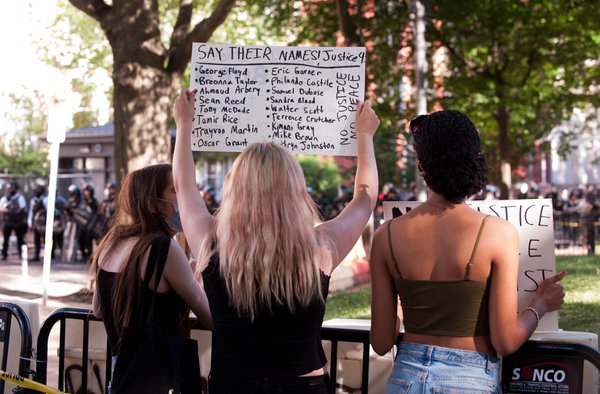 SAY THEIR NAMES! Justice 4
• George Floyd
• Breonna Taylor
• Ahmaud Arbery
• Sean Reed
• Tony McDade
• Tamir Rice
• Trayvon Martin
• Oscar Grant
• Eric Garner
• Philando Castile
• Samuel Dubose
• Sandra Bland
• Walter Scott
• Terrence Crutcher
• Kimani Gray
• Mike Brown
Johnston
NO JUSTICE
NO PEACE
JUSTICE
SONCO